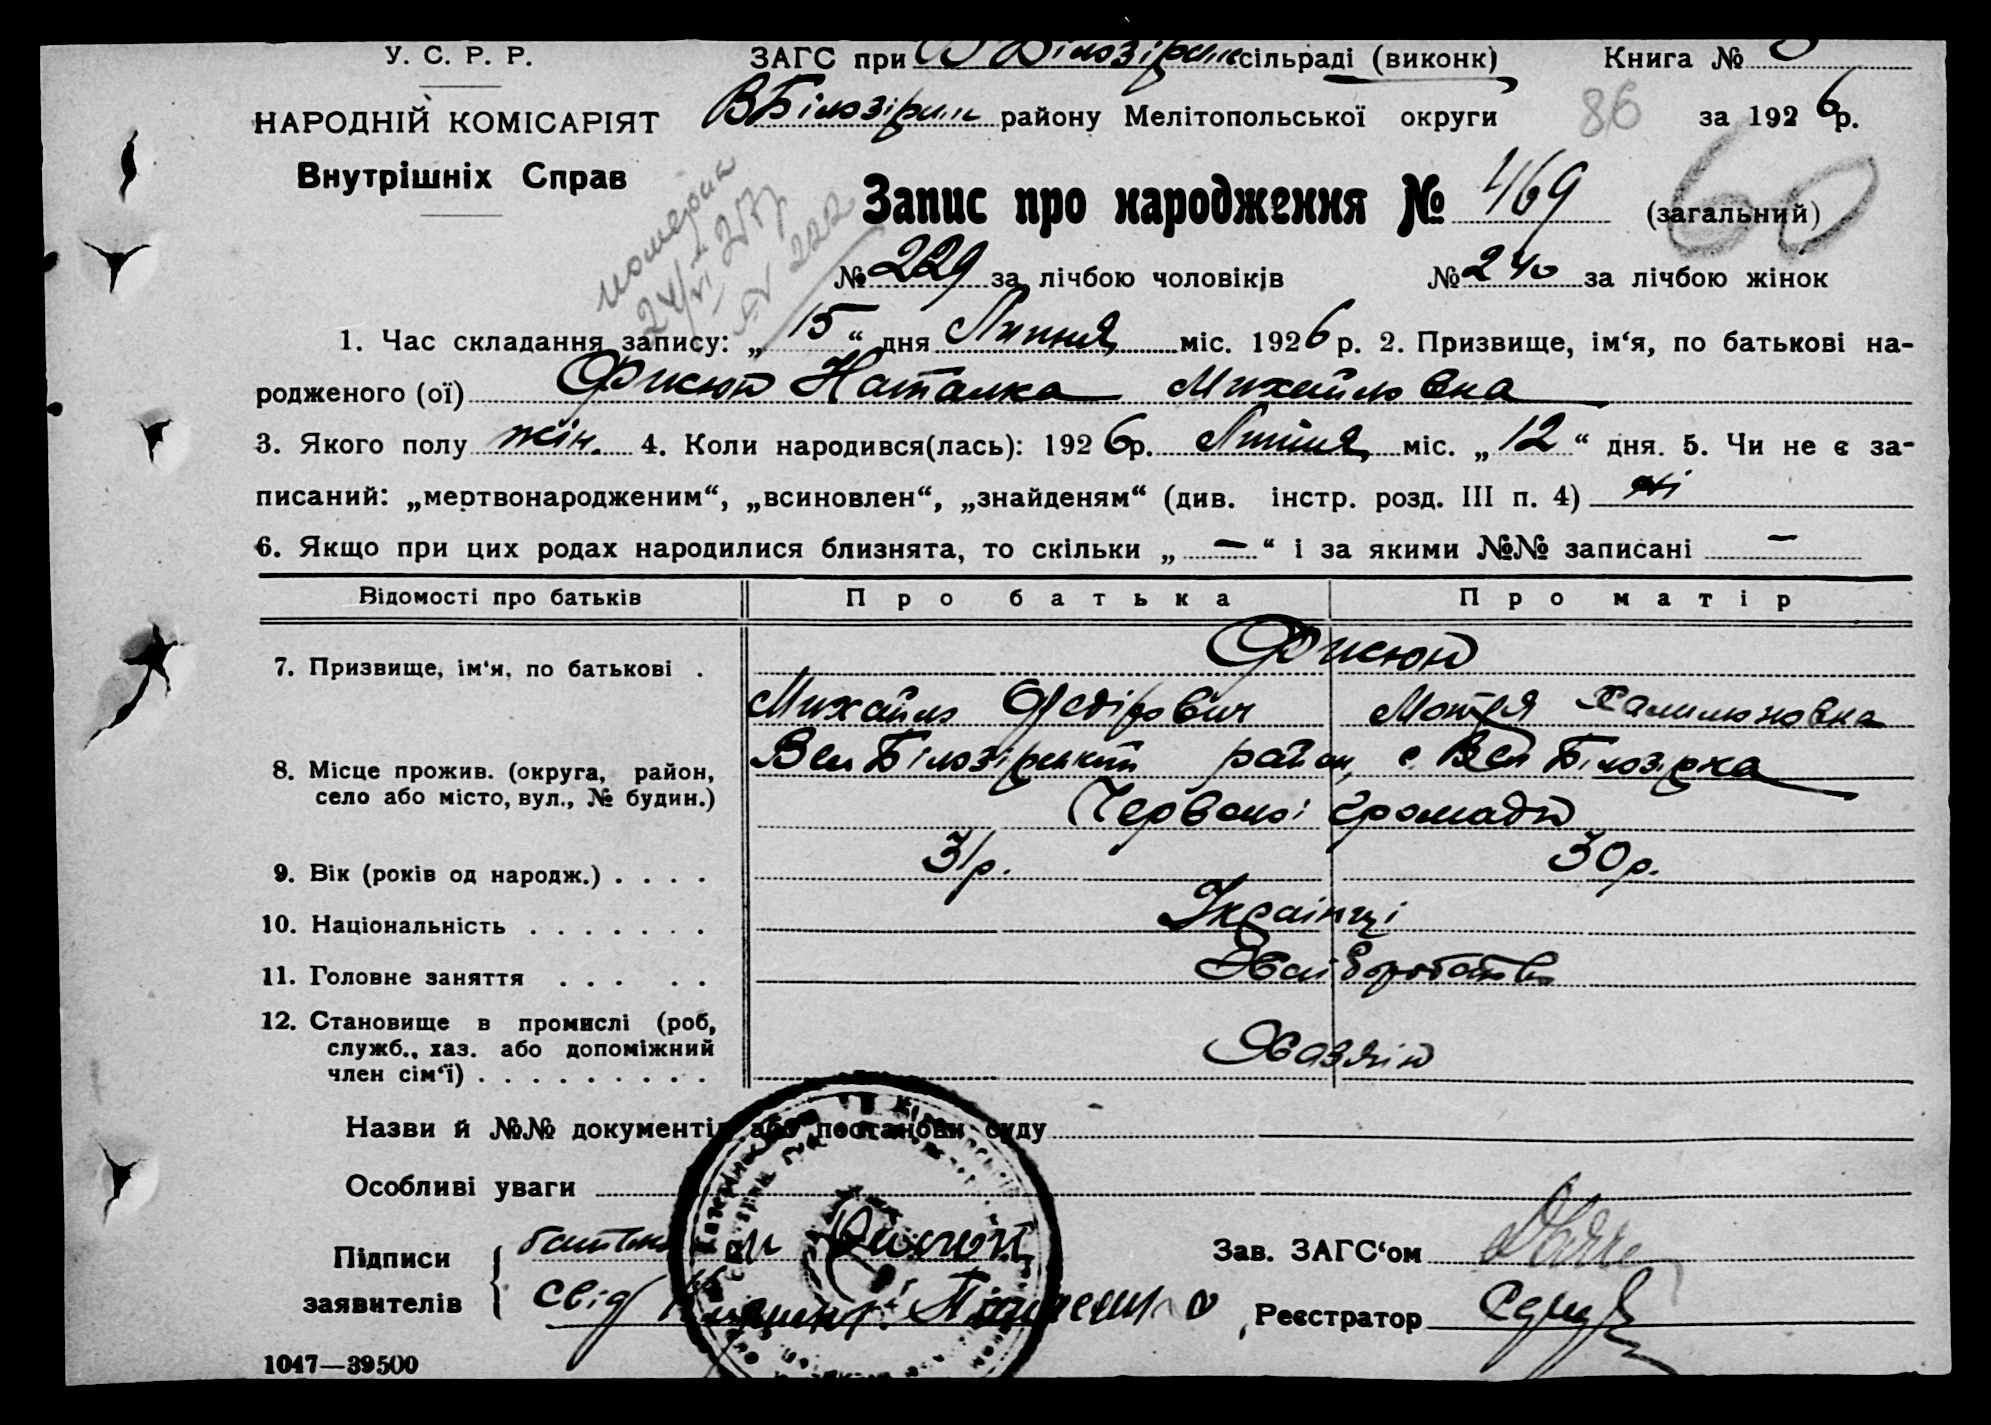 У. С. Р. Р.
НАРОДНІЙ КОМІСАРІЯТ
Внутрішніх Справ
ЗАГС при В Білозірк сільраді (виконк)
В Білозірк району Мелітопольської округи
Книга №
86 за 1926 р.
60
Запис про народження № 469 (загальний)
24/VI 222
№ 229 за лічбою чоловіків № 240 за лічбою жінок
1. Час складання запису: „15“ дня Липня міс. 1926 р. 2. Призвище, ім‘я, по батькові на-
родженого (ої) Фисюн Наталка Михайловна
3. Якого полу жін. 4. Коли народився(лась): 1926 р. Липня міс. „12“ дня. 5. Чи не є за-
писаний: „мертвонародженим“, „всиновлен“, „знайденям“ (див. інстр. розд. III п. 4) ні
6. Якщо при цих родах народилися близнята, то скільки „ — “ і за якими №№ записані —
Відомості про батьків Про батька Про матір
7. Призвище, ім‘я, по батькові . Фисюн
Михайло Федірович Мотря
8. Місце прожив. (округа, район, село або місто, вул., № будин.) Вел Білозірський район, с. Вел Білозірка
Червоної громади
9. Вік (років од народж.) . . . . 31 р. 30 р.
10. Національність . . . . . . . Українці
11. Головне заняття . . . . . Хліборобство
12. Становище в промислі (роб, служб., хаз. або допоміжний член сім‘ї) . . . . . . . . . Хазяїн
Назви й №№ документів або постанови суду
Особливі уваги
Підписи заявителів { батько М Фисюн
свід
Зав. ЗАГС‘ом
Реєстратор
1047—39500